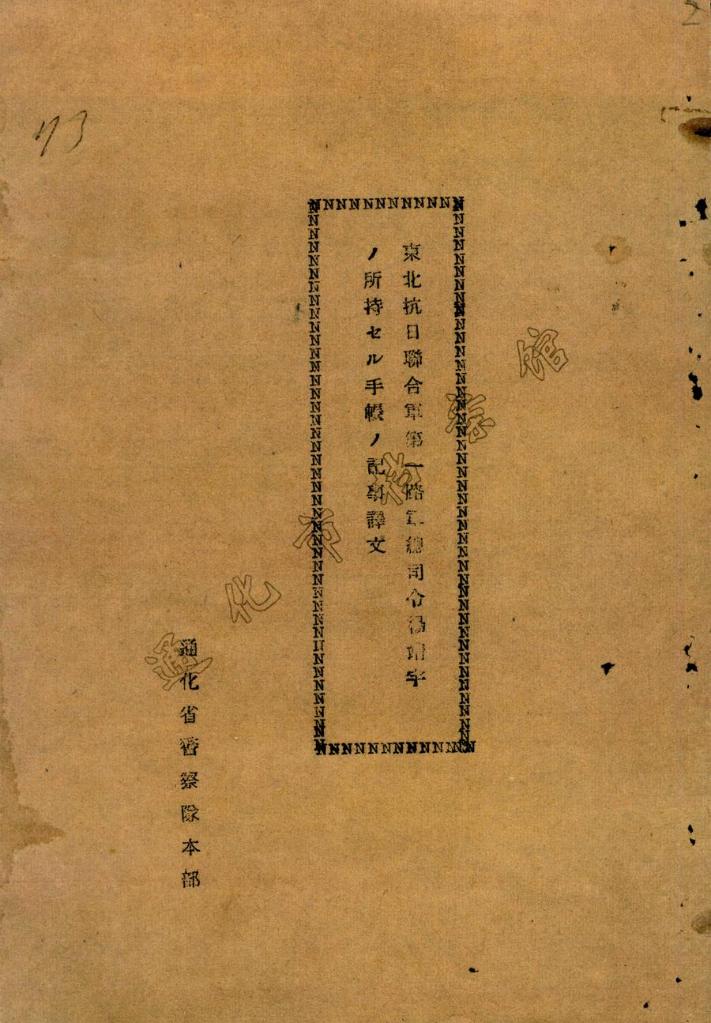 73
東北抗日聯合軍第一路軍總司令楊靖宇
ノ所持セル手帳ノ記事譯文
通化省警察隊本部
通化市档案馆